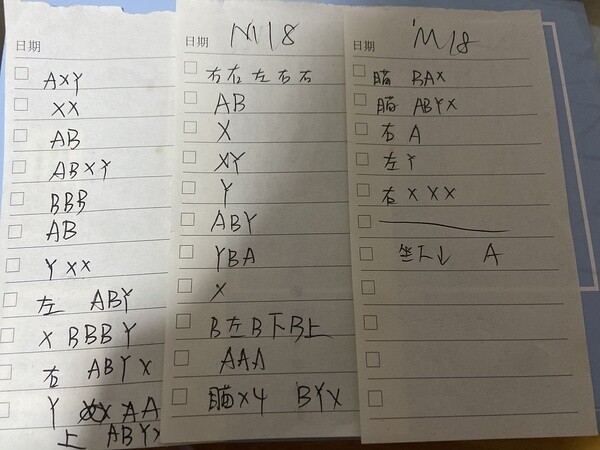 日期
AXY
XX
AB
ABXY
BBB
AB
YXX
左 ABY
X BBB Y
右 ABYX
Y AA
上 ABYX
日期 M18
右右左右右
AB
X
XY
Y
ABY
YBA
X
B左B下B上
AAA
瞄×4 BYX
日期 M18
瞄 BAX
瞄 ABYX
右 A
左 Y
右 XXX
坐下↓ A